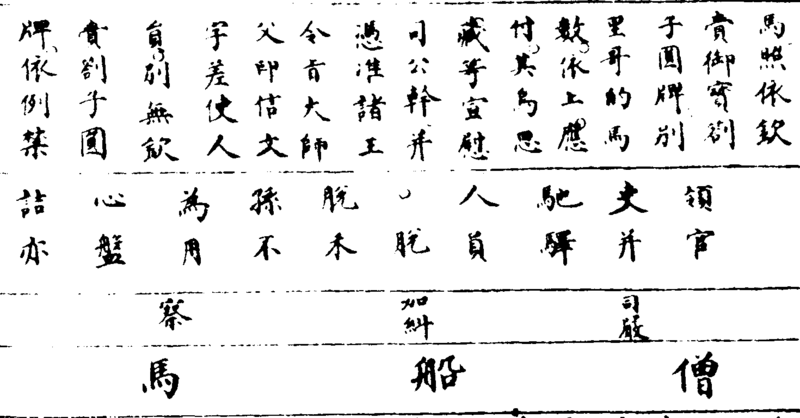 馬照依欽
賫御寶劄
子圓牌別
里哥的馬
數依上應
付其烏思
藏等宣慰
司公幹并
憑准諸王
令旨大師
父印信文
字差使人
員別無欽
賫劄子圓
牌依例禁
領官
吏并
馳驛
人員
脫
脫禾
孫不
為用
心盤
詰亦
司嚴
加糾
察
僧
船
馬